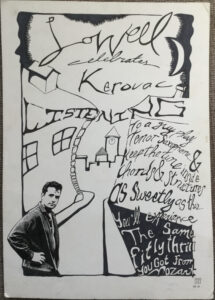 Lowell
celebrates
Kerouac
LISTENING
to a Guy play
Tenor Saxophone &
Keep the tone
Chords & Structures
as Sweetly as the
you'll experience
The Same
Fitly thrill
you Got from
Mozart